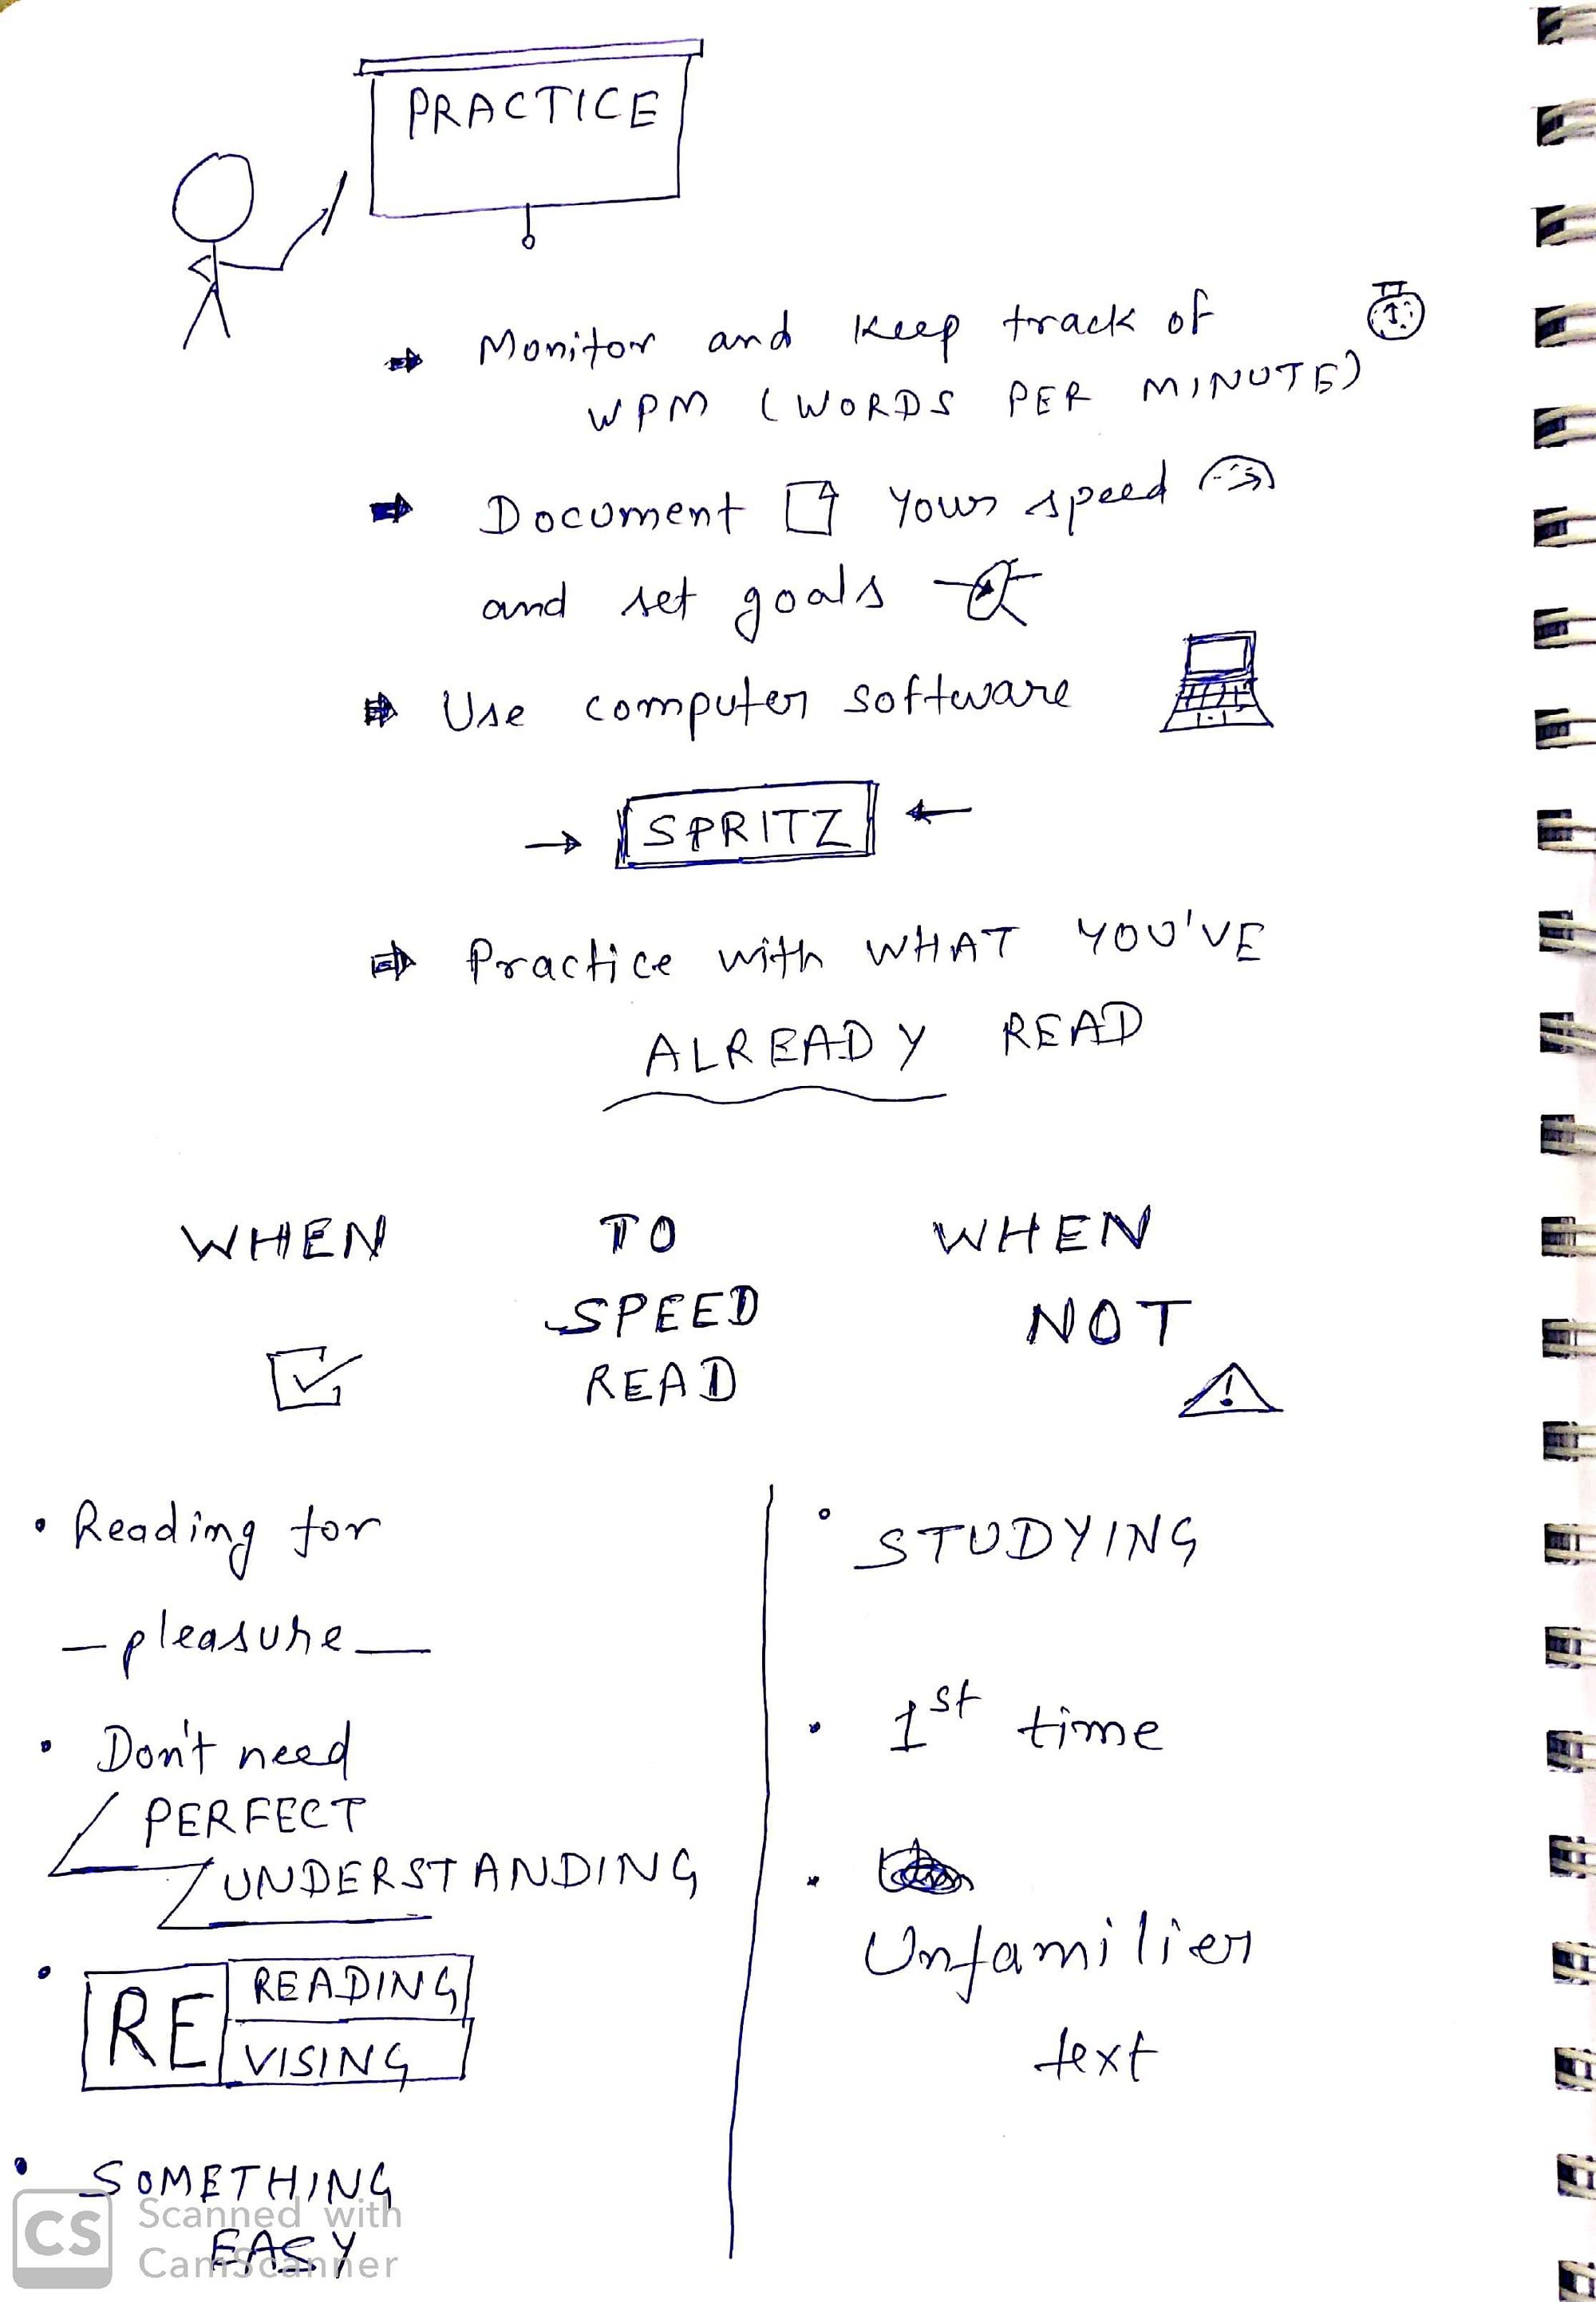 PRACTICE
Monitor and keep track of
WPM (WORDS PER MINUTE)
Document your speed
and set goals
Use computer software
SPRITZ
Practice with WHAT YOU'VE
ALREADY READ
WHEN TO WHEN
SPEED NOT
READ
• Reading for
pleasure
• Don't need
PERFECT
UNDERSTANDING
• RE READING
VISING
• SOMETHING
EASY
• STUDYING
• 1st time
• Unfamilier
text
CS Scanned with
CamScanner